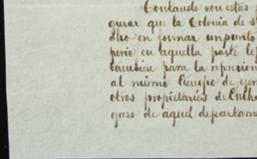 Contando con estas
gurar que la Colonia de S
dro en formar un punto
perio en aquella parte le
tambien para la represion
al mismo tiempo de gar
otros propietarios de Entre
greso de aquel departam